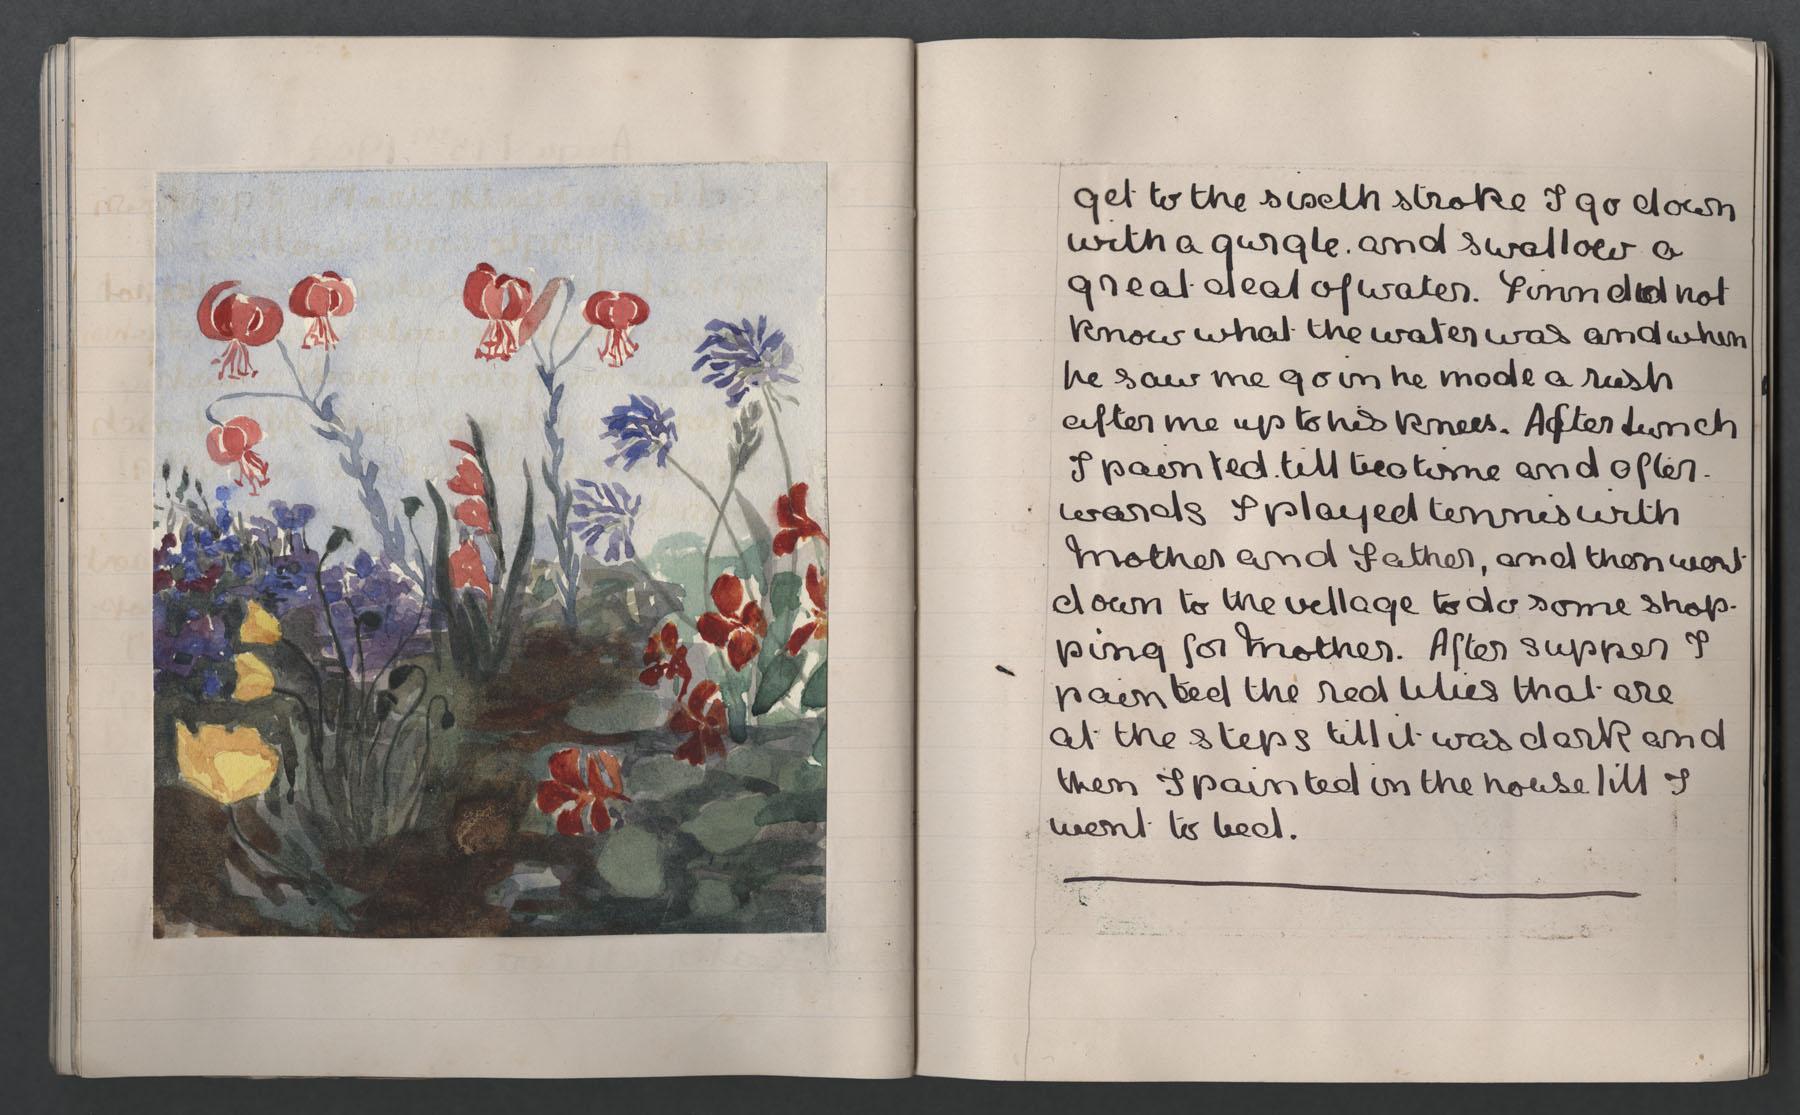 get to the sixth stroke I go down
with a gurgle. and swallow a
great deal of water. Finn did not
know what the water was and when
he saw me go in he made a rush
after me up to his knees. After lunch
I painted till tea time and after-
wards I played tennis with
Mother and Father, and then went
down to the village to do some shop-
ping for Mother. After supper I
painted the red lilies that are
at the steps till it was dark and
then I painted in the house till I
went to bed.